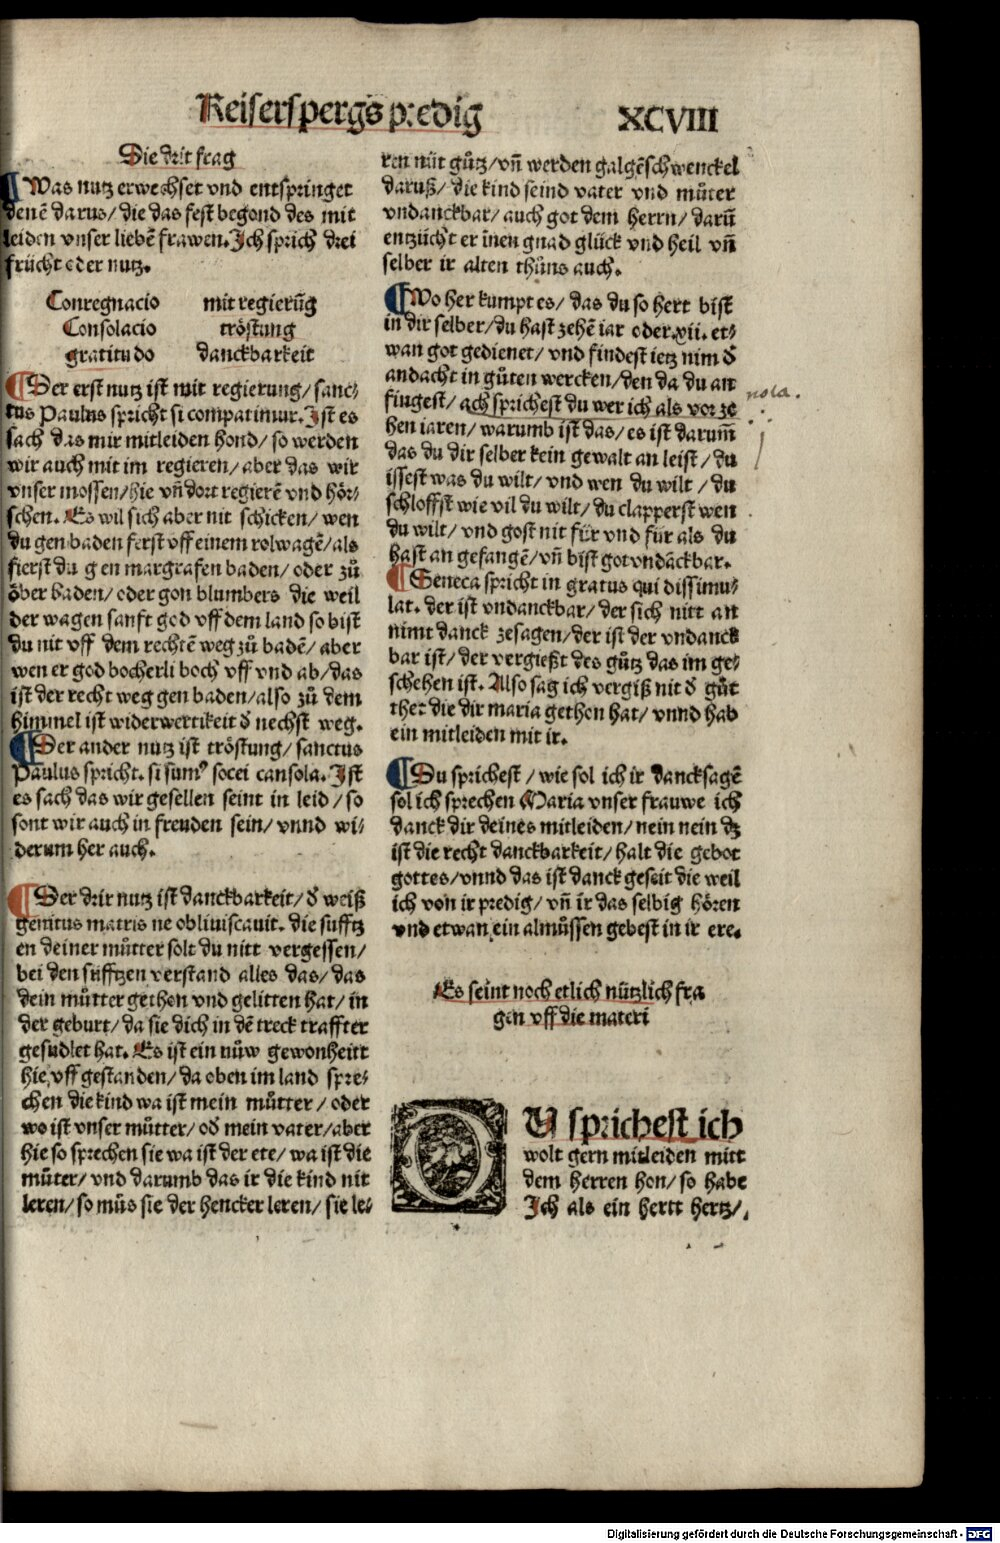 Keiserspergs predig XCVIII
Die drit frag
¶ Was nutz erwechset vnd entspringet
denē darus/ die das fest begond des mit
leiden vnser liebē frawen. Ich sprich drei
frücht oder nutz.
Conregnacio mit regierūg
Consolacio tröstung
gratitudo danckbarkeit
¶ Der erst nutz ist mit regierung/ sanc⸗
tus Paulus spricht si compatimur. Ist es
sach das mir mitleiden hond/ so werden
wir auch mit im regieren/ aber das wir
vnser mossen/ hie vn̄ dort regierē vnd hör⸗
schen. Es wil sich aber nit schicken/ wen
du gen baden ferst vff einem rolwagē/ als
fierst du gen margrafen baden/ oder zů
ober baden/ oder gon blumbers die weil
der wagen sanft god vff dem land so bist
du nit vff dem rechtē weg zů badē/ aber
wen er god bocherli boch vff vnd ab/ das
ist der recht weg gen baden/ also zů dem
himmel ist widerwertikeit d̄ nechst weg.
¶ Der ander nutz ist tröstung/ sanctus
Paulus spricht. si sumꝰ socei consola. Ist
es sach das wir gesellen seint in leid/ so
sont wir auch in freuden sein/ vnnd wi⸗
derum her auch.
¶ Der drir nutz ist danckbarkeit/ d̄ weiß
genitus matris ne obliuiscauit. die sufftz
en deiner můtter solt du nitt vergessen/
bei den sufftzen verstand alles das/ das
dein můtter gethon vnd gelitten hat/ in
der geburt/ da sie dich in dē treck traffter
gesudlet hat. Es ist ein nüw gewonheitt
hie vff gestanden/ da oben im land spre⸗
chen die kind wa ist mein můtter/ oder
wo ist vnser můtter/ od̄ mein vater/ aber
hie so sprechen sie wa ist der ete/ wa ist die
můter/ vnd darumb das ir die kind nit
leren/ so můs sie der hencker leren/ sie le⸗
ren nüt gůtz/ vn̄ werden galgēschwenckel
daruß/ die kind seind vater vnd můter
vndanckbar/ auch got dem herrn/ darū
entzücht er inen gnad glück vnd heil vn̄
selber ir alten thůns auch.
¶ Wo her kumpt es/ das du so hert bist
in dir selber/ du hast zehē iar oder xii. et⸗
wan got gedienet/ vnd findest ietz nim d̄
andacht in gůten wercken/ den da du an
fingest/ ach sprichest du wer ich als vor ze
hen iaren/ warumb ist das/ es ist darum̄
das du dir selber kein gewalt an leist/ du
issest was du wilt/ vnd wen du wilt/ du
schloffst wie vil du wilt/ du clapperst wen
du wilt/ vnd gost nit für vnd für als du
hast an gefangē/ vn̄ bist got vndāckbar.
¶ Seneca spricht in gratus qui dissimu⸗
lat. der ist vndanckbar/ der sich nitt an
nimt danck zesagen/ der ist der vndanck
bar ist/ der vergießt des gůtz das im ge⸗
schehen ist. Also sag ich vergiß nit d̄ gůt
thet die dir maria gethon hat/ vnnd hab
ein mitleiden mit ir.
¶ Du sprichest/ wie sol ich ir dancksagē
sol ich sprechen Maria vnser frauwe ich
danck dir deines mitleiden/ nein nein dz
ist die recht danckbarkeit/ halt die gebot
gottes/ vnnd das ist danck geseit die weil
ich von ir predig/ vn̄ ir das selbig hören
vnd etwan ein almůssen gebest in ir ere.
Es seint noch etlich nützlich fra
gen vff die materi
DU sprichest ich
wolt gern mitleiden mitt
dem herren hon/ so habe
Ich als ein hertt hertz/
nota.
Digitalisierung gefördert durch die Deutsche Forschungsgemeinschaft - DFG